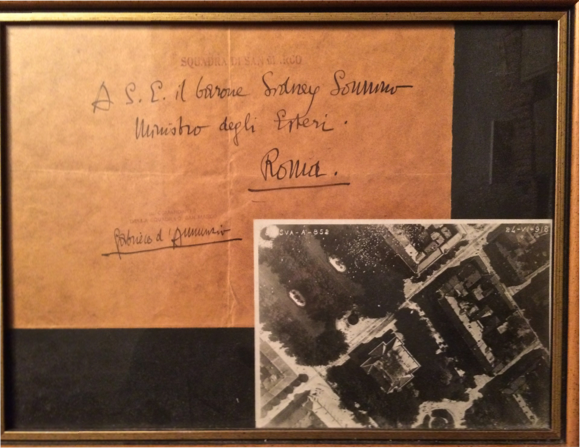 SQUADRA DI SAN MARCO
A S. E. il barone Sidney Sonnino
Ministro degli Esteri.
Roma.
Gabriele d'Annunzio